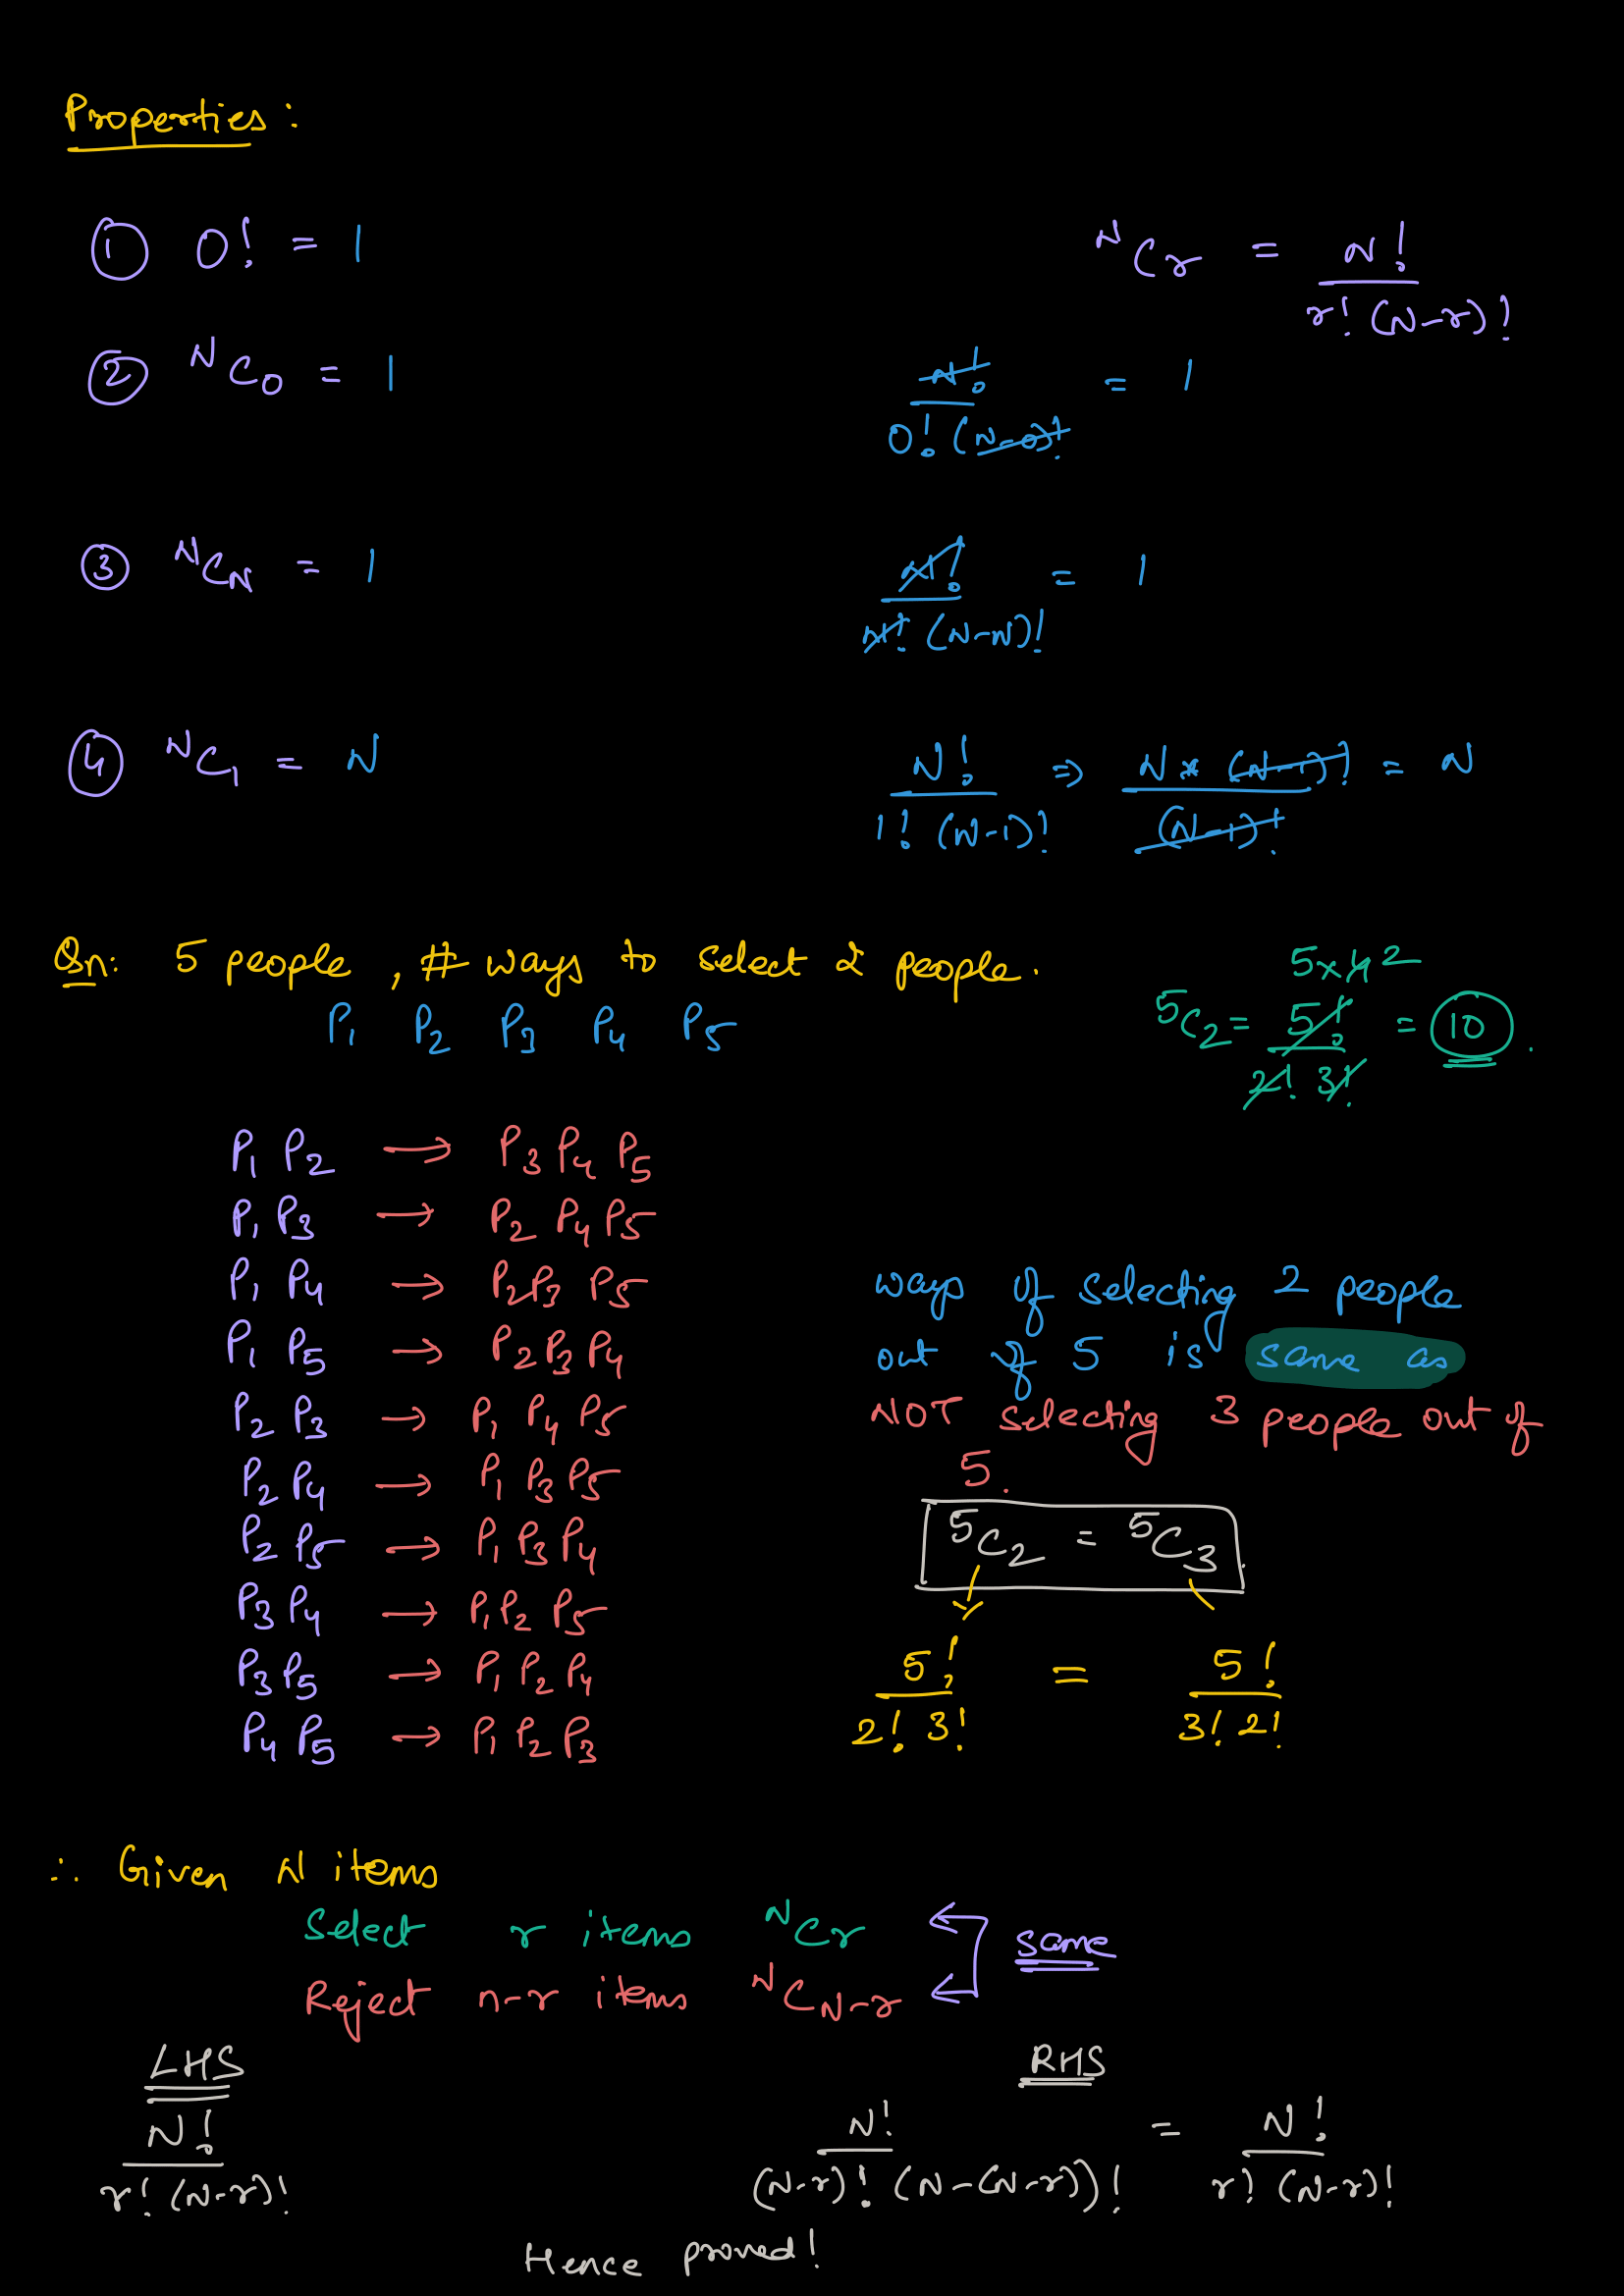 Properties:
① 0! = 1
ᴺCr = N! / r! (N-r)!
② ᴺC₀ = 1
N! / 0! (N-0)! = 1
③ ᴺCɴ = 1
N! / N! (N-N)! = 1
④ ᴺC₁ = N
N! / 1! (N-1)! ⇒ N * (N-1)! / (N-1)! = N
Qn: 5 people, # ways to select 2 people.
P₁ P₂ P₃ P₄ P₅
5x4 2
⁵C₂ = 5! / 2! 3! = 10.
P₁ P₂ → P₃ P₄ P₅
P₁ P₃ → P₂ P₄ P₅
P₁ P₄ → P₂ P₃ P₅
P₁ P₅ → P₂ P₃ P₄
P₂ P₃ → P₁ P₄ P₅
P₂ P₄ → P₁ P₃ P₅
P₂ P₅ → P₁ P₃ P₄
P₃ P₄ → P₁ P₂ P₅
P₃ P₅ → P₁ P₂ P₄
P₄ P₅ → P₁ P₂ P₃
ways of selecting 2 people
out of 5 is same as
NOT selecting 3 people out of
5.
⁵C₂ = ⁵C₃
5! / 2! 3! = 5! / 3! 2!
∴ Given N items
Select r items ᴺCr
same
Reject n-r items ᴺCN-r
LHS
N! / r! (N-r)!
RHS
N! / (N-r)! (N-(N-r))! = N! / r! (N-r)!
Hence proved!